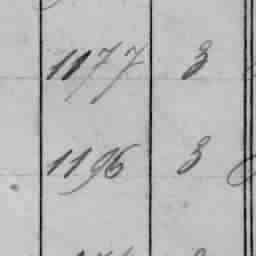 1177 3
1196 3